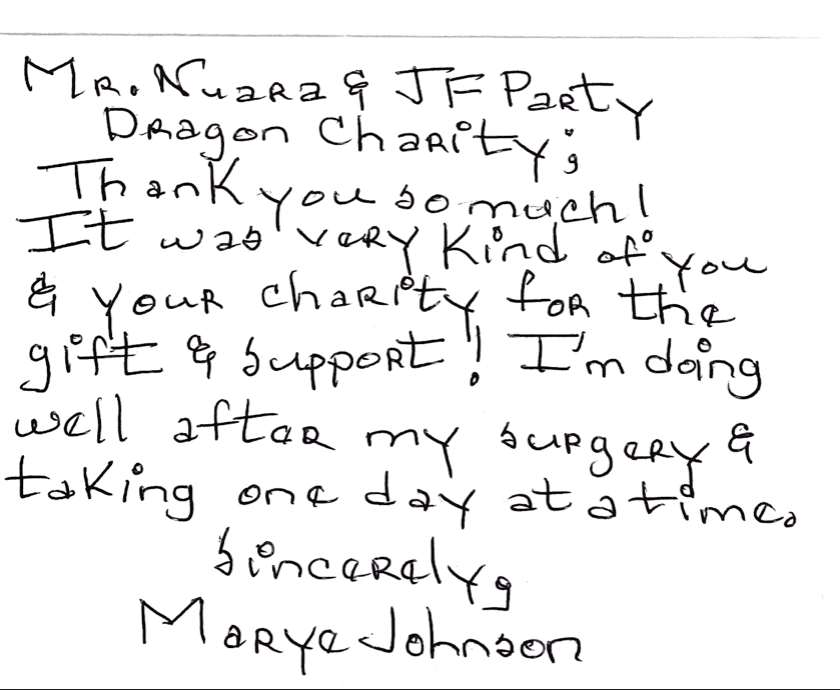 Mr. Nuara & JF Party
Dragon Charity;
Thank you so much!
It was very kind of you
& your charity for the
gift & support! I'm doing
well after my surgery &
taking one day at a time.
Sincerely,
Marye Johnson